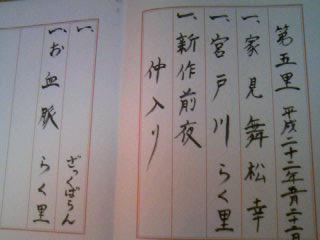 第五里 平成二十二年
一、家見舞 松幸
一、宮戸川 らく里
一、新作前夜
仲入り
一、 ざっくばらん
一、お血脈 らく里